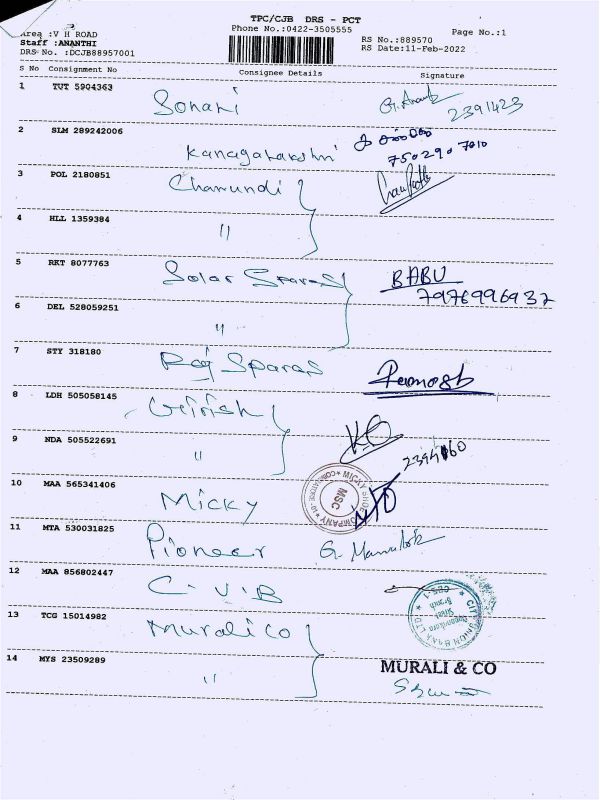 TPC/CJB DRS - PCT
Phone No.:0422-3505555
Page No.:1
Area :V H ROAD
Staff :ANANTHI
DRS No. :DCJB88957001
RS No.:889570
RS Date:11-Feb-2022
S No Consignment No Consignee Details Signature
1 TUT 5904363 Sonari 2391423
2 SLM 289242006 Kanagalakshmi 750290 7010
3 POL 2180851 Chamundi
4 HLL 1359384 "
5 RKT 8077763 Solar Spares BABU
7976996937
6 DEL 528059251 "
7 STY 318180 Raj Spares
8 LDH 505058145 Girish
9 NDA 505522691 "
10 MAA 565341406 Micky
MSC
11 MTA 530031825 Pioneer G.
12 MAA 856802447 C.U.B
CITY UNION BANK LTD
13 TCG 15014982 Murali co
MURALI & CO
14 MYS 23509289 "